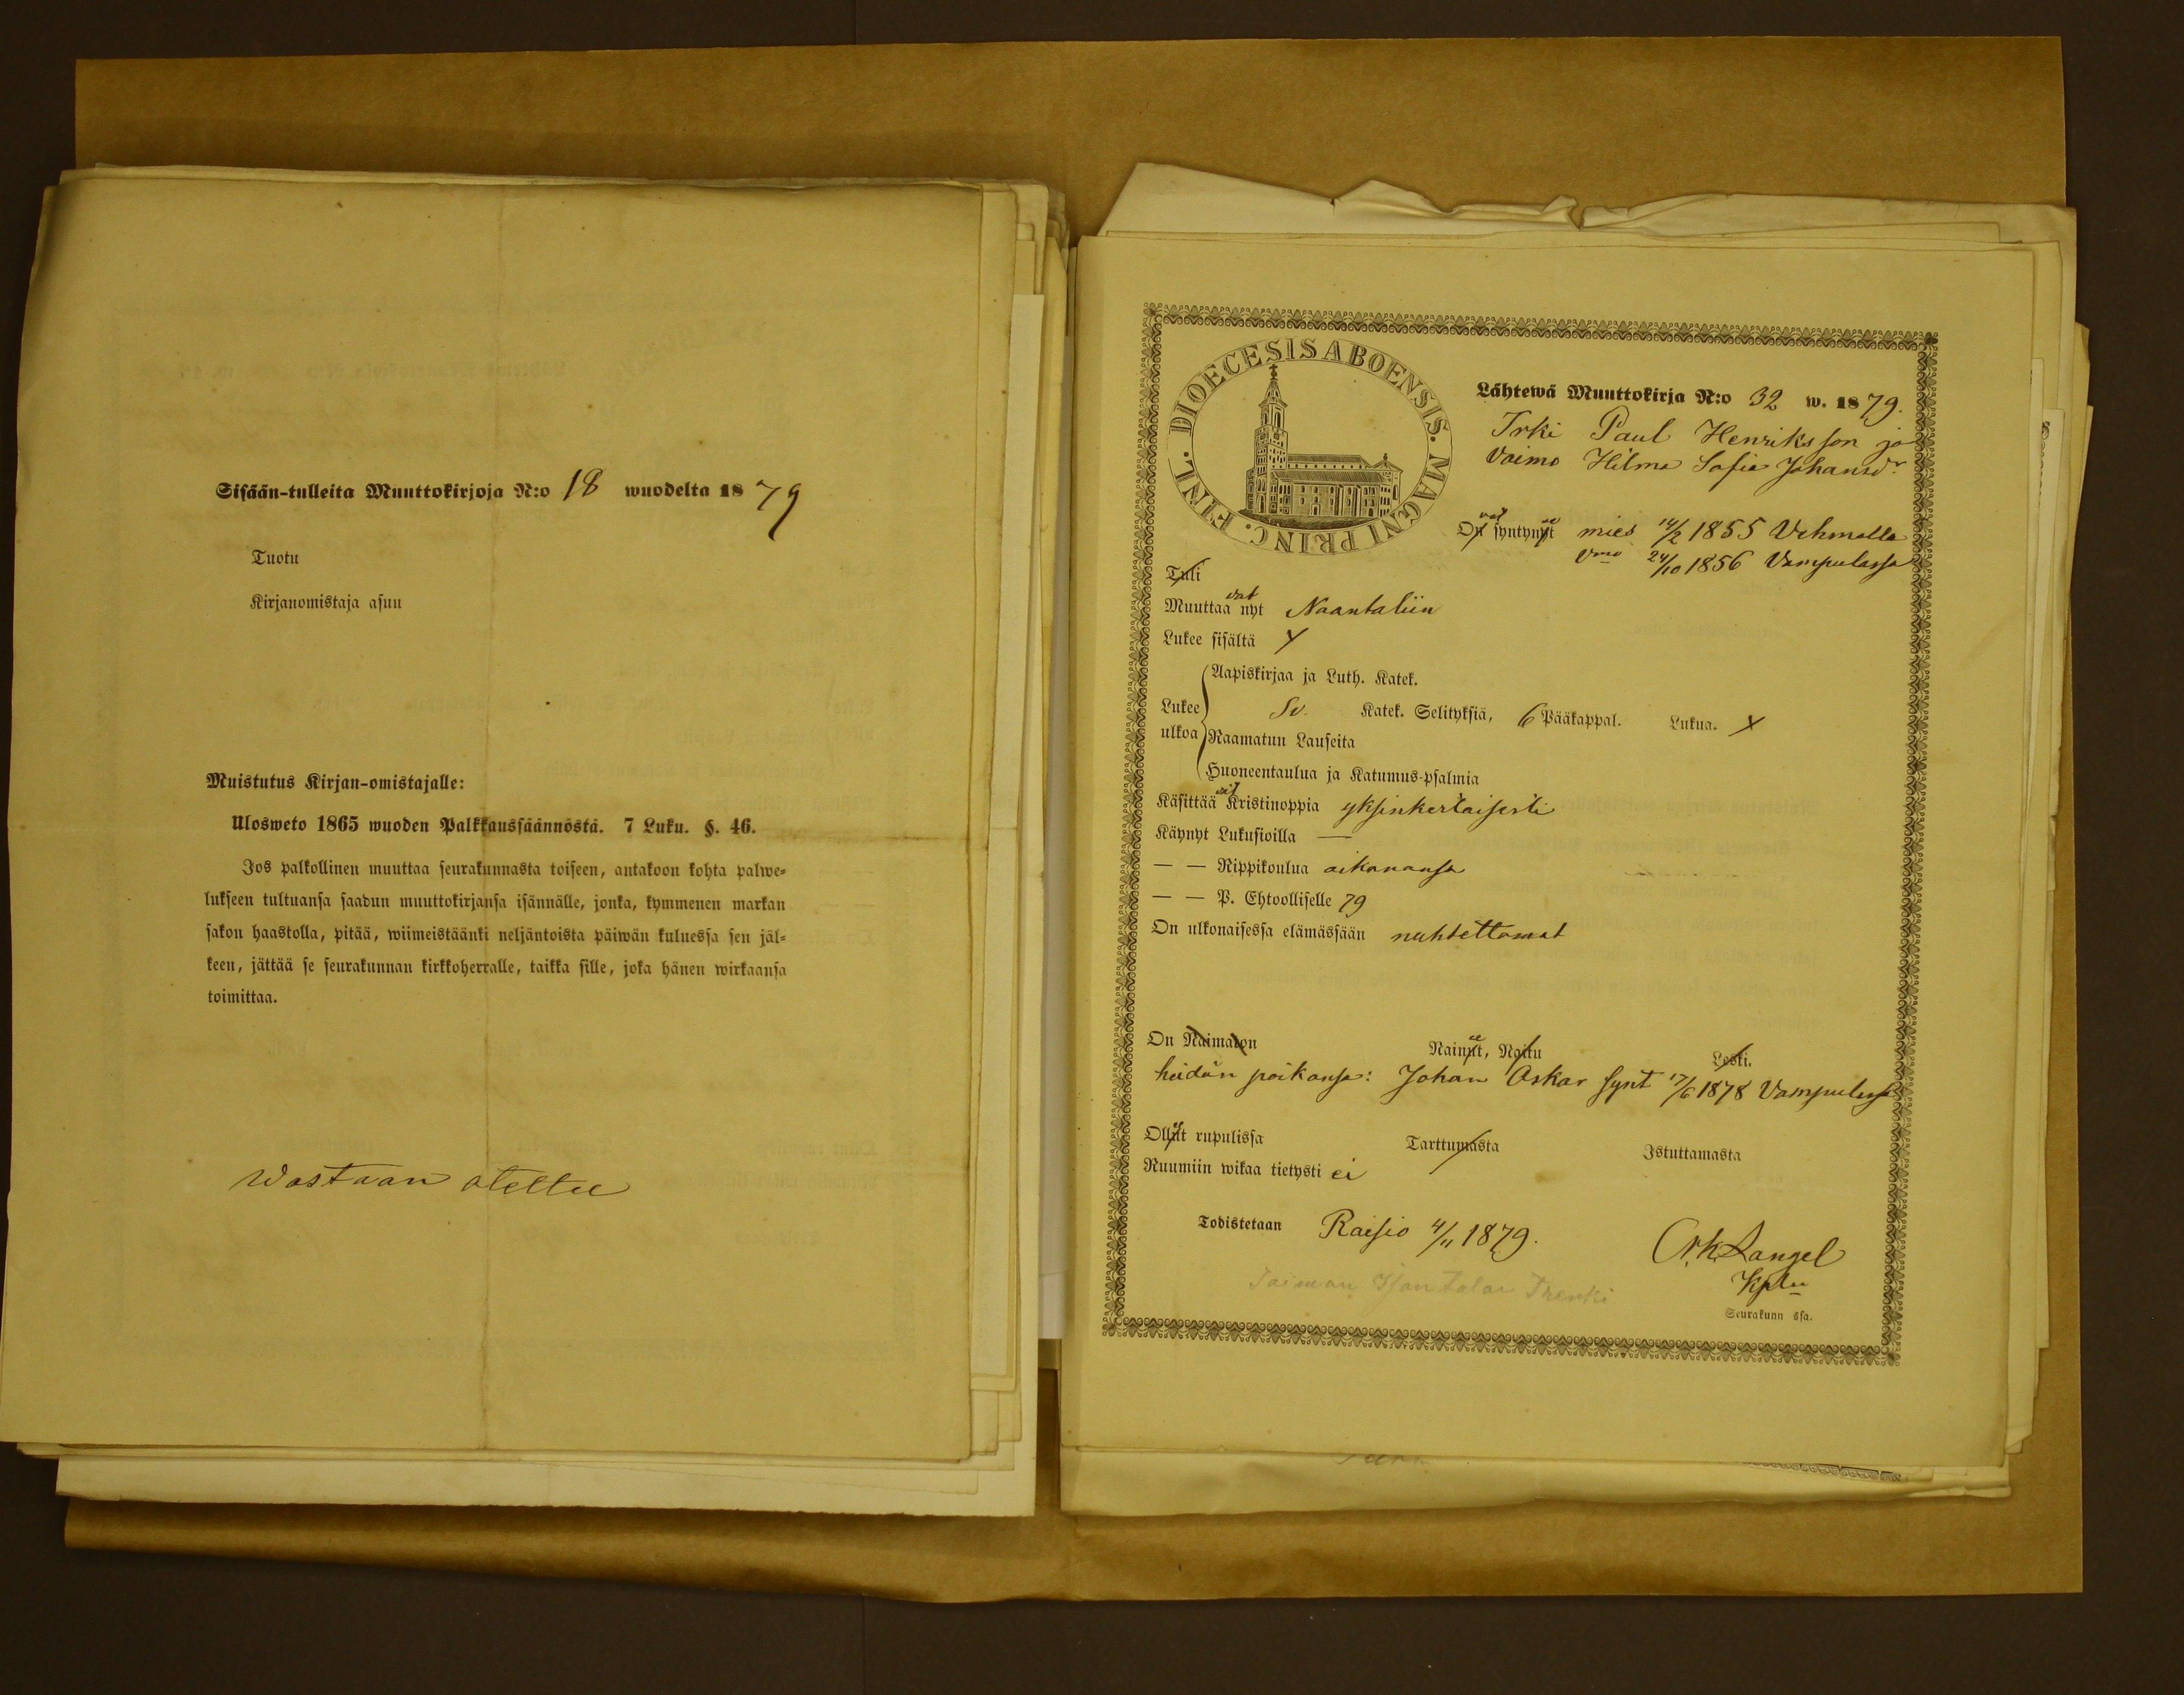 Sisään-tulleita Muuttokirjoja N:o 18 wuodelta 1879
Tuotu
Kirjanomistaja asuu
Muistutus Kirjan-omistajalle:
Ulosweto 1865 wuoden Palkkaussäännöstä. 7 Luku. §. 46.
Jos palkollinen muuttaa seurakunnasta toiseen, antakoon kohta palwe-
lukseen tultuansa saadun muuttokirjansa isännälle, jonka, kymmenen markan
sakon haastolla, pitää, wiimeistäänki neljäntoista päiwän kuluessa sen jäl-
keen, jättää se seurakunnan kirkkoherralle, taikka sille, joka hänen wirkaansa
toimittaa.
Wastaan otettu
DIOECESIS ABOENSIS. MAGNI PRINC. FINL.
Lähtewä Muuttokirja N:o 32 w. 1879.
Irki Paul Henriksson ja
Vaimo Hilma Sofia Johansdr
Ovat syntyneet mies 14/2 1855 Vehmalla
Vmo 24/10 1856 Vampulassa
Tuli
Muuttaavat nyt Naantaliin
Lukee sisältä x
Lukee ulkoa
Aapiskirjaa ja Luth. Katek.
Sv. Katek. Selityksiä, 6 Pääkappal. Lukua. x
Raamatun Lauseita
Huoneentaulua ja Katumus-psalmia
Käsittäävät Kristinoppia yksinkertaisesti
Käynyt Lukusioilla —
— — Rippikoulua aikanansa
— — P. Ehtoolliselle 79
On ulkonaisessa elämässään nuhtettomat
On Naimaton Naineet, Naitu Leski.
heidän poikansa: Johan Oskar synt 17/6 1878 Vampulassa
Olleet rupulissa Tarttumasta Istuttamasta
Ruumiin wikaa tietysti ei
Todistetaan Raisio 4/11 1879.
Langel
Kpln
Seurakunn ssa.